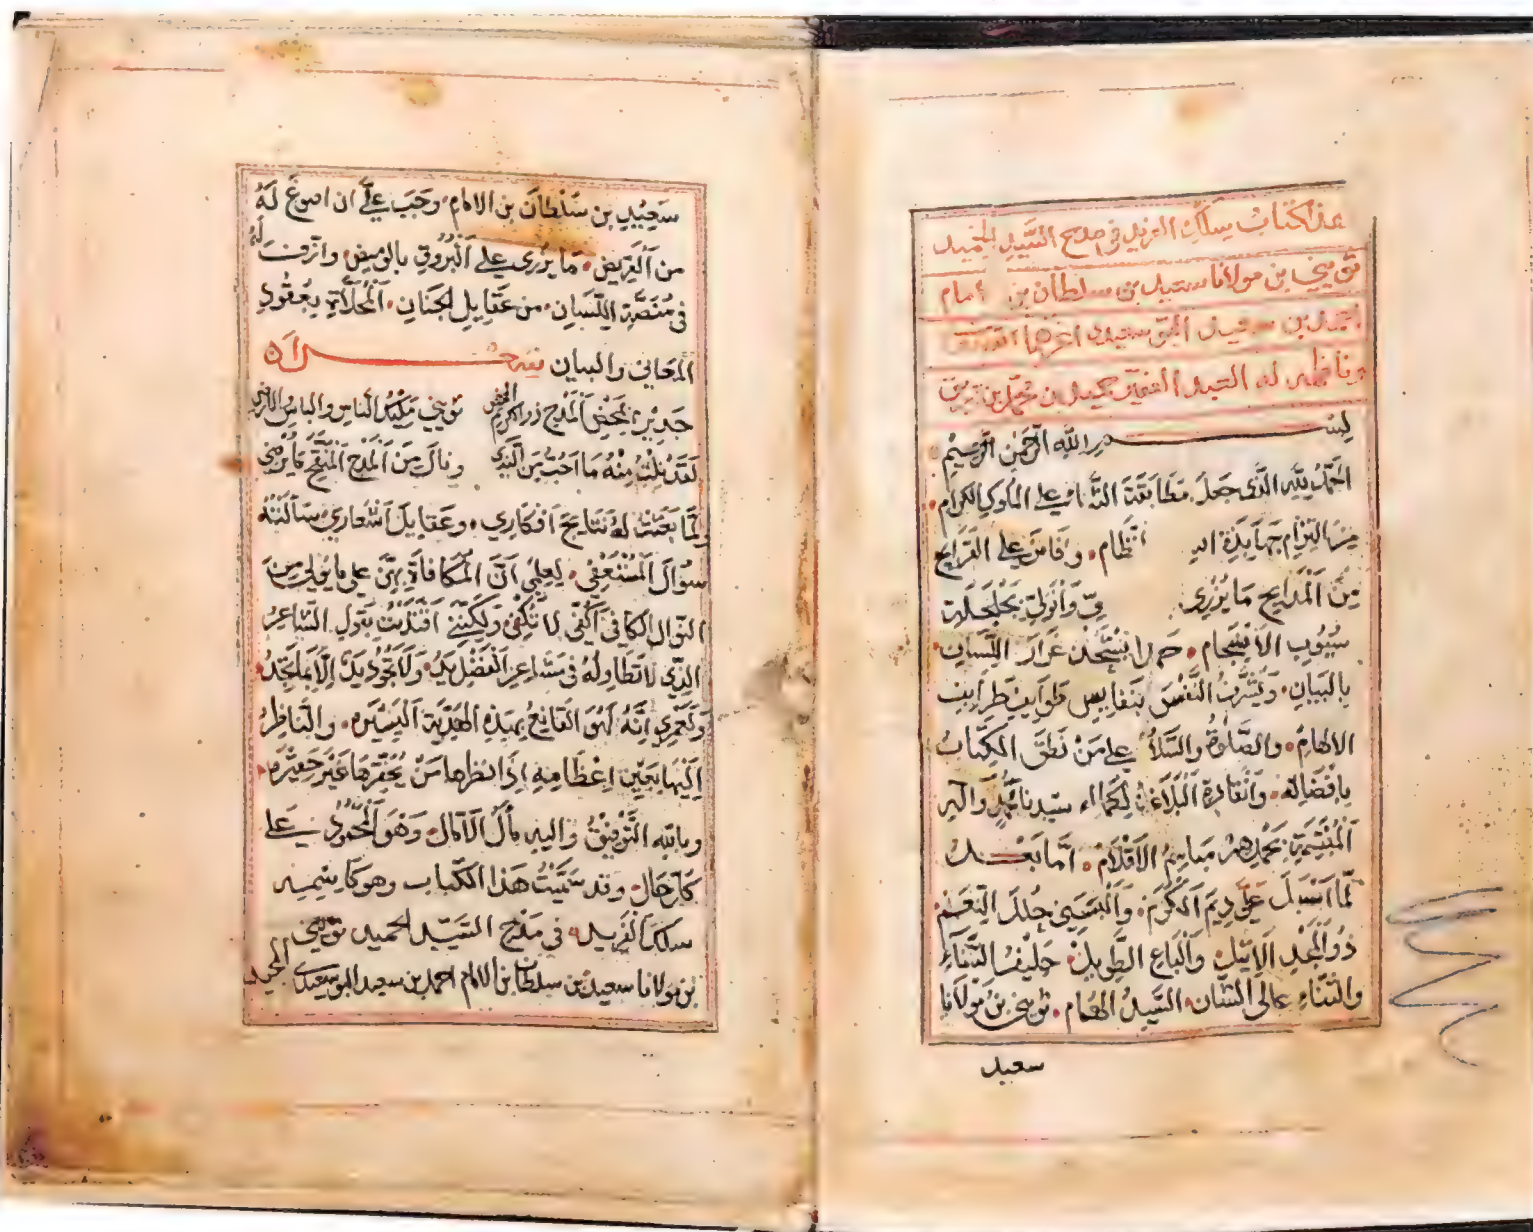 هذا كتاب سلك الفريد في مدح السيد الحميد
ثويني بن مولانا سعيد بن سلطان بن امام
احمد بن سعيد البوسعيدي
وناظمه له العبد الفقير حميد بن محمد بن رزيق
بسم الله الرحمن الرحيم
الحمد لله الذي جعل مطابقة الثناء على الملوك الكرام
من التزام جهابذة انتظام وافاض على القرايح
من المدايح ما يزري وانولي بجلجلة
سيوب الانسجام حمدا يشحذ غرار اللسان
بالبيان ويشرف النفس بنفايس طرايف
الالهام والصلوة والسلام على من نطق الكتاب
بافضاله وانقادة البلاغة سيدنا محمد واله
بحمدهم مباسم الاقلام اما بعد
لما اسبل علي ديم الكرم والبسني حلل النعم
ذو المجد الاثيل والباع الطويل حليف الثناء
والثناء عالي الشان السيد الهمام ثويني بن مولانا
سعيد
سعيد بن سلطان بن الامام وجب علي ان اصوغ له
من القريض ما يزري على البروق بالوميض وازفت له
في منصة اللسان من عقايل الجنان المحلاة بعقود
المعاني والبيان
جدير بمحض المدح ذو الكرم المحض ثويني مليك الناس والباس
لقد نلت منه ما احب من الندى ونال من المدح المنقح ما يرضي
لما بعثت له نتايج افكاري وعقايل اشعاري سالته
سؤال المستعفي لعلمي ان المكافاة مني على ما يولي من
النوال الكافي لا تكفي ولكنني اقتديت بقول الشاعر
الذي لا تطاوله في مشاعر الفضل يد ولا تجود يد الا بما تجد
ولعمري انه لهو القانع بهذه الهدية اليسيره والناظر
اليها بعين اعظامه اذا نظرها من يحقرها غير حقيره
وبالله التوفيق واليه مأل الآمال وهو المحمود على
كل حال وقد سميت هذا الكتاب وهو كاسميه
سلك الفريد في مدح السيد الحميد ثويني المجيد
بن مولانا سعيد بن سلطان بن الامام احمد بن سعيد البوسعيدي